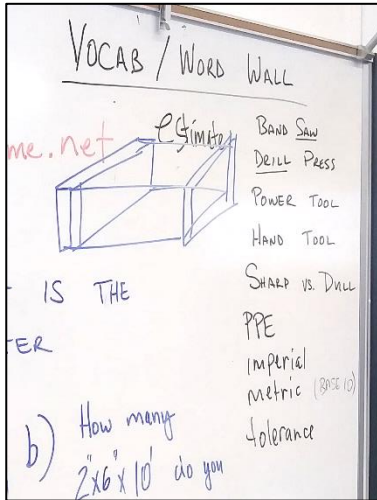 VOCAB / WORD WALL
me.net
estimate
BAND SAW
DRILL PRESS
POWER TOOL
HAND TOOL
SHARP VS. DULL
PPE
imperial
metric (BASE 10)
tolerance
IS THE
TER
b) How many
2"x6"x10' do you